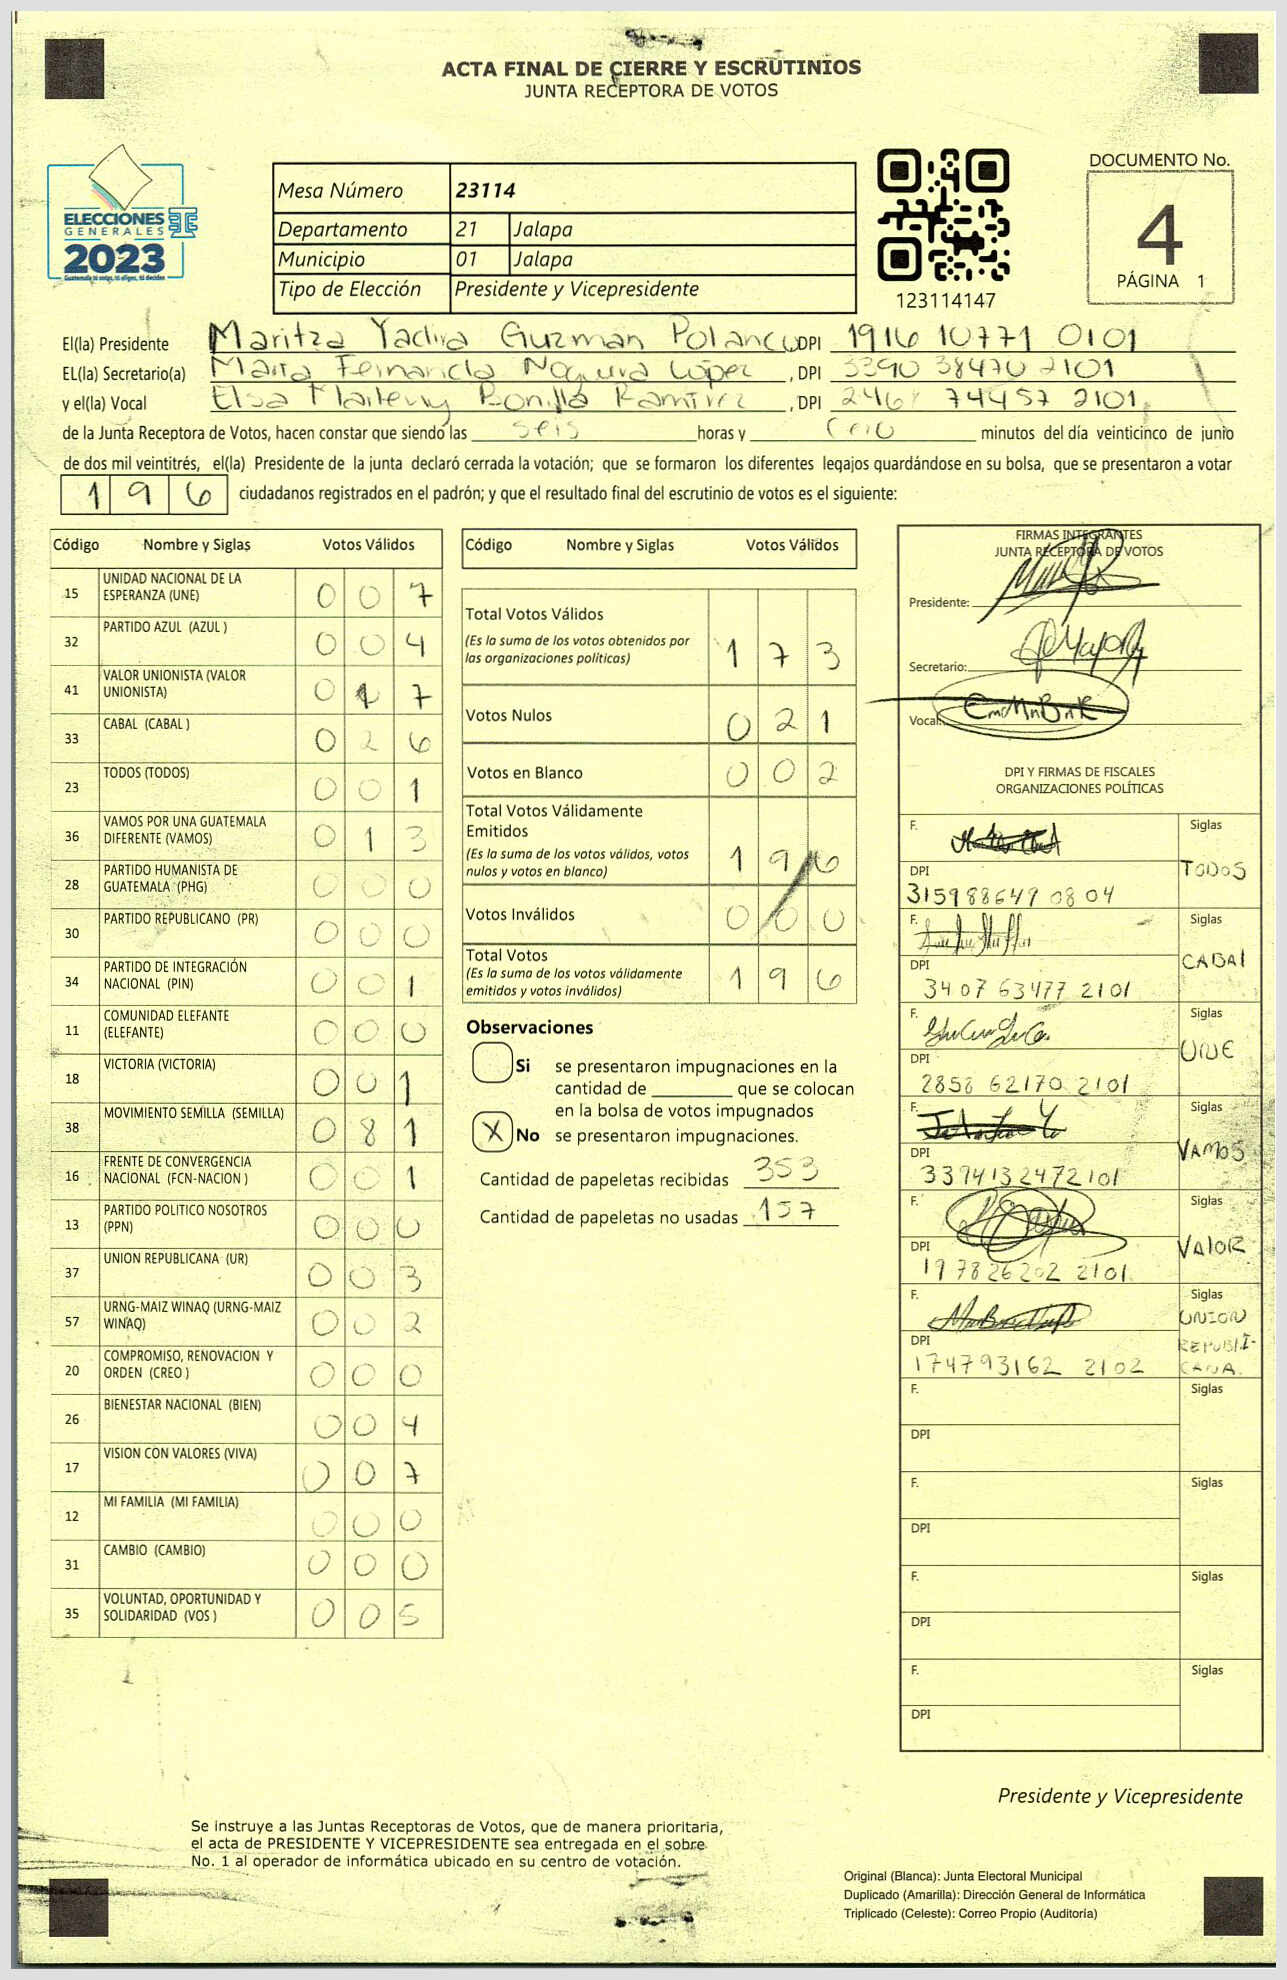 ACTA FINAL DE CIERRE Y ESCRUTINIOS
JUNTA RECEPTORA DE VOTOS
ELECCIONES
GENERALES
2023
Mesa Número 23114
Departamento 21 Jalapa
Municipio 01 Jalapa
Tipo de Elección Presidente y Vicepresidente
123114147
DOCUMENTO No.
4
PÁGINA 1
El(la) Presidente Maritza Yadira Guzman Polanco DPI 1916 10771 0101
EL(la) Secretario(a) Maria Fernanda Noguera López , DPI 3390 38470 2101
y el(la) Vocal Elsa Bonilla Ramirez , DPI 74457 2101
de la Junta Receptora de Votos, hacen constar que siendo las seis horas y cero minutos del día veinticinco de junio
de dos mil veintitrés, el(la) Presidente de la junta declaró cerrada la votación; que se formaron los diferentes legajos quardándose en su bolsa, que se presentaron a votar
196 ciudadanos registrados en el padrón; y que el resultado final del escrutinio de votos es el siguiente:
Código Nombre y Siglas Votos Válidos
15 UNIDAD NACIONAL DE LA ESPERANZA (UNE) 0 0 7
32 PARTIDO AZUL (AZUL ) 0 0 4
41 VALOR UNIONISTA (VALOR UNIONISTA) 0 1 7
33 CABAL (CABAL ) 0 2 6
23 TODOS (TODOS) 0 0 1
36 VAMOS POR UNA GUATEMALA DIFERENTE (VAMOS) 0 1 3
28 PARTIDO HUMANISTA DE GUATEMALA (PHG) 0 0 0
30 PARTIDO REPUBLICANO (PR) 0 0 0
34 PARTIDO DE INTEGRACIÓN NACIONAL (PIN) 0 0 1
11 COMUNIDAD ELEFANTE (ELEFANTE) 0 0 0
18 VICTORIA (VICTORIA) 0 0 1
38 MOVIMIENTO SEMILLA (SEMILLA) 0 8 1
16 FRENTE DE CONVERGENCIA NACIONAL (FCN-NACION ) 0 0 1
13 PARTIDO POLITICO NOSOTROS (PPN) 0 0 0
37 UNION REPUBLICANA (UR) 0 0 3
57 URNG-MAIZ WINAQ (URNG-MAIZ WINAQ) 0 0 2
20 COMPROMISO, RENOVACION Y ORDEN (CREO ) 0 0 0
26 BIENESTAR NACIONAL (BIEN) 0 0 4
17 VISION CON VALORES (VIVA) 0 0 7
12 MI FAMILIA (MI FAMILIA) 0 0 0
31 CAMBIO (CAMBIO) 0 0 0
35 VOLUNTAD, OPORTUNIDAD Y SOLIDARIDAD (VOS ) 0 0 5
Código Nombre y Siglas Votos Válidos
Total Votos Válidos 1 7 3
(Es la suma de los votos obtenidos por
las organizaciones políticas)
Votos Nulos 0 2 1
Votos en Blanco 0 0 2
Total Votos Válidamente
Emitidos 1 9 6
(Es la suma de los votos válidos, votos
nulos y votos en blanco)
Votos Inválidos 0 0 0
Total Votos 1 9 6
(Es la suma de los votos válidamente
emitidos y votos inválidos)
Observaciones
Si se presentaron impugnaciones en la
cantidad de ________ que se colocan
en la bolsa de votos impugnados
X No se presentaron impugnaciones.
Cantidad de papeletas recibidas 353
Cantidad de papeletas no usadas 157
FIRMAS INTEGRANTES
JUNTA RECEPTORA DE VOTOS
Presidente:
Secretario:
Vocal:
DPI Y FIRMAS DE FISCALES
ORGANIZACIONES POLÍTICAS
F. Siglas
TODOS
DPI
315988649 0804
F. Siglas
CABAL
DPI
3407 63477 2101
F. Siglas
UNE
DPI
2858 62170 2101
F. Siglas
VAMOS
DPI
3394132472101
F. Siglas
VALOR
DPI
197826202 2101
F. Siglas
UNION
REPUBLI-
CANA.
DPI
174793162 2102
F. Siglas
DPI
F. Siglas
DPI
F. Siglas
DPI
F. Siglas
DPI
Presidente y Vicepresidente
Se instruye a las Juntas Receptoras de Votos, que de manera prioritaria,
el acta de PRESIDENTE Y VICEPRESIDENTE sea entregada en el sobre
No. 1 al operador de informática ubicado en su centro de votación.
Original (Blanca): Junta Electoral Municipal
Duplicado (Amarilla): Dirección General de Informática
Triplicado (Celeste): Correo Propio (Auditoría)